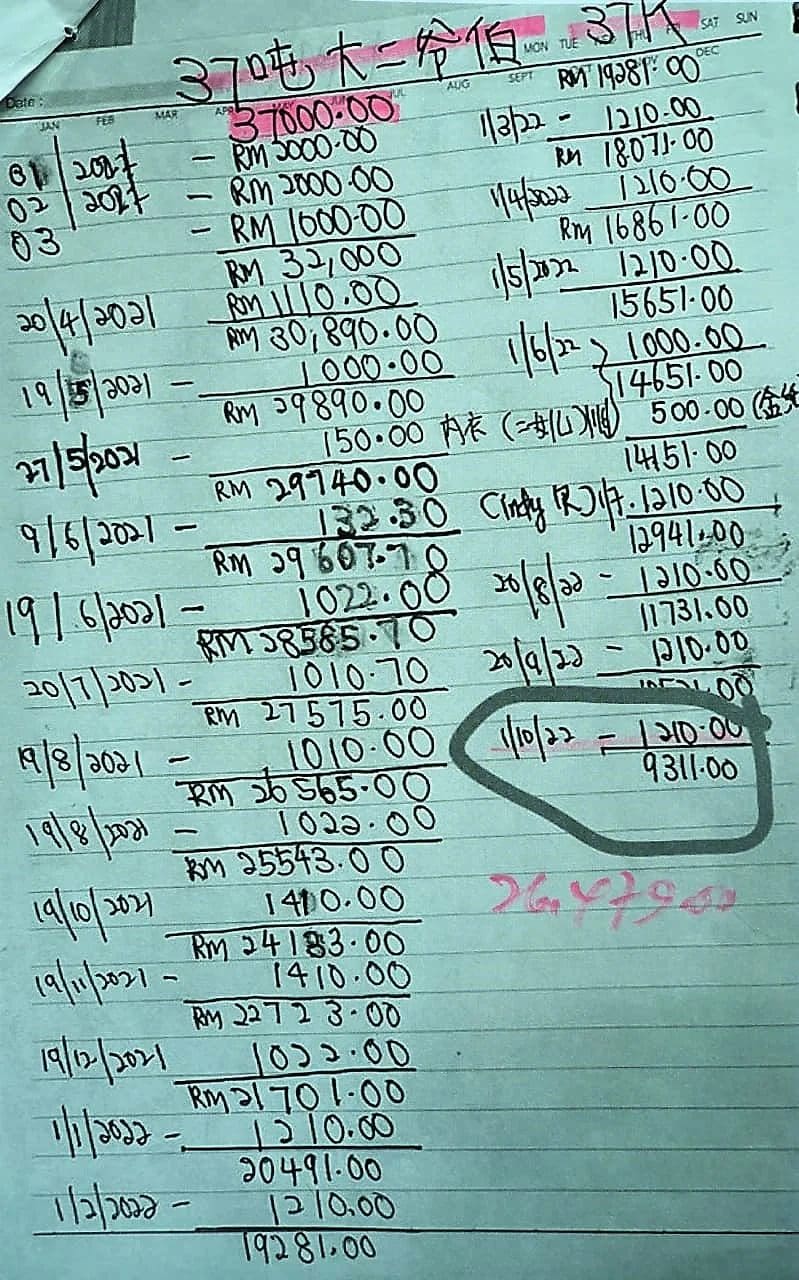 37吨大二爷伯 37K
Date: JAN FEB MAR APR MAY JUN JUL AUG SEPT DEC
MON TUE THU FRI SAT SUN
37000.00
01/2021 - RM 2000.00
02/2021 - RM 2000.00
03 - RM 1000.00
RM 32,000
20/4/2021 RM 1110.00
RM 30,890.00
19/5/2021 - 1000.00
RM 29890.00
27/5/2021 - 150.00 内衣
RM 29740.00
9/6/2021 - 132.30
RM 29607.70
19/6/2021 - 1022.00
RM 28585.70
20/7/2021 - 1010.70
RM 27575.00
19/8/2021 - 1010.00
RM 26565.00
19/8/2021 - 1022.00
RM 25543.00
19/10/2021 1410.00
RM 24133.00
19/11/2021 - 1410.00
RM 22723.00
19/12/2021 1022.00
RM 21701.00
1/1/2022 - 1210.00
20491.00
1/2/2022 - 1210.00
19281.00
RM 19281.00
1/3/22 - 1210.00
RM 18071.00
1/4/2022 1210.00
RM 16861.00
1/5/2022 1210.00
15651.00
1/6/22 1000.00
14651.00
500.00
14151.00
Cindy (R) 1/7. 1210.00
12941.00
20/8/22 - 1210.00
11731.00
20/9/22 - 1210.00
10521.00
1/10/22 - 1210.00
9311.00
26,479.00